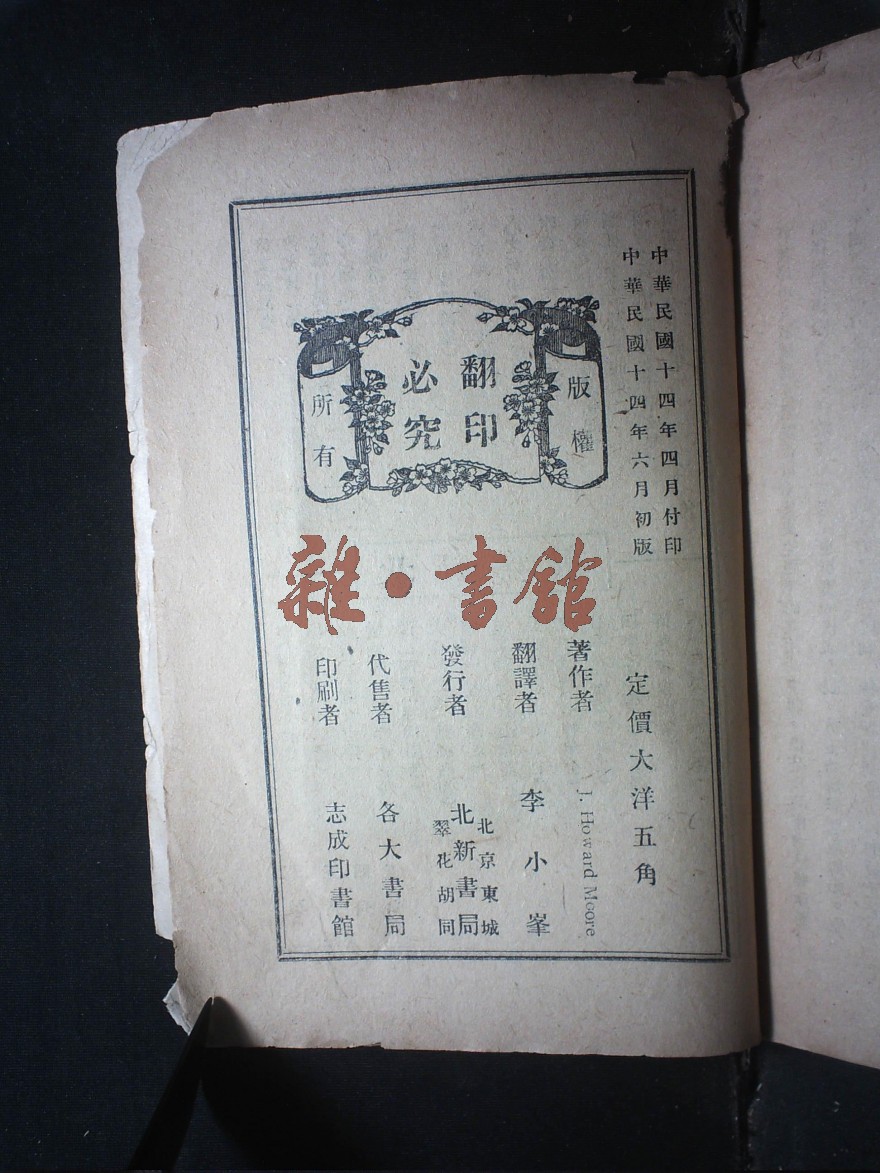 中華民國十四年四月付印
中華民國十四年六月初版
版權
翻印
必究
所有
雜·書館
定價大洋五角
著作者 J. Howard Moore
翻譯者 李小峯
發行者 北京東城
北新書局
翠花胡同
代售者 各大書局
印刷者 志成印書館